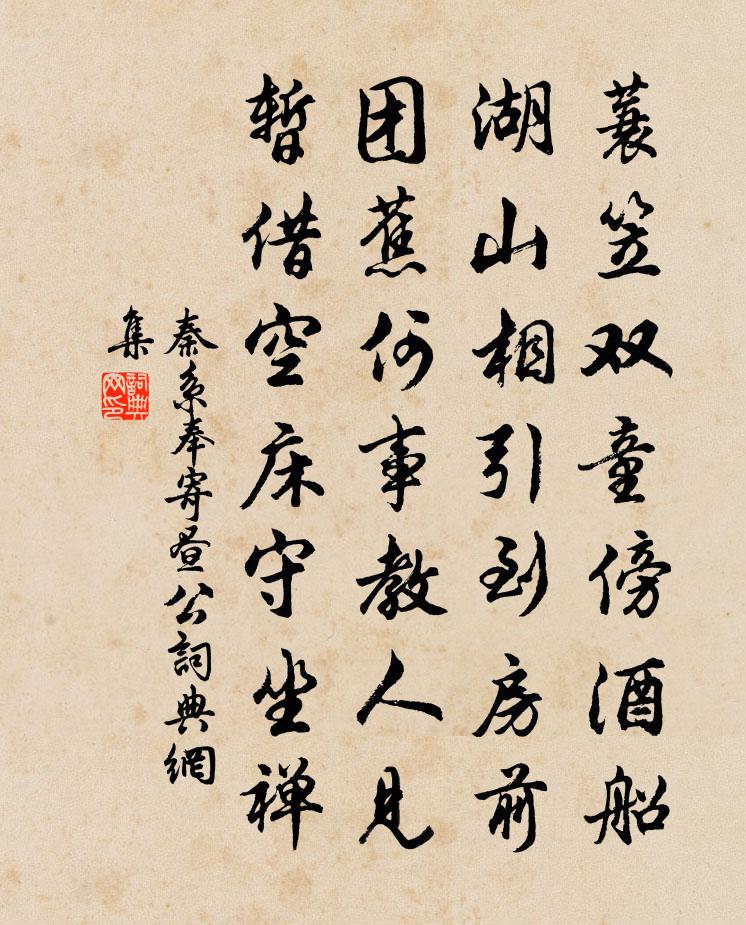 蓑笠双童傍酒船
湖山相引到房前
团蕉何事教人见
暂借空床守坐禅
秦系奉寄昼公詞典網
集
詞典网印